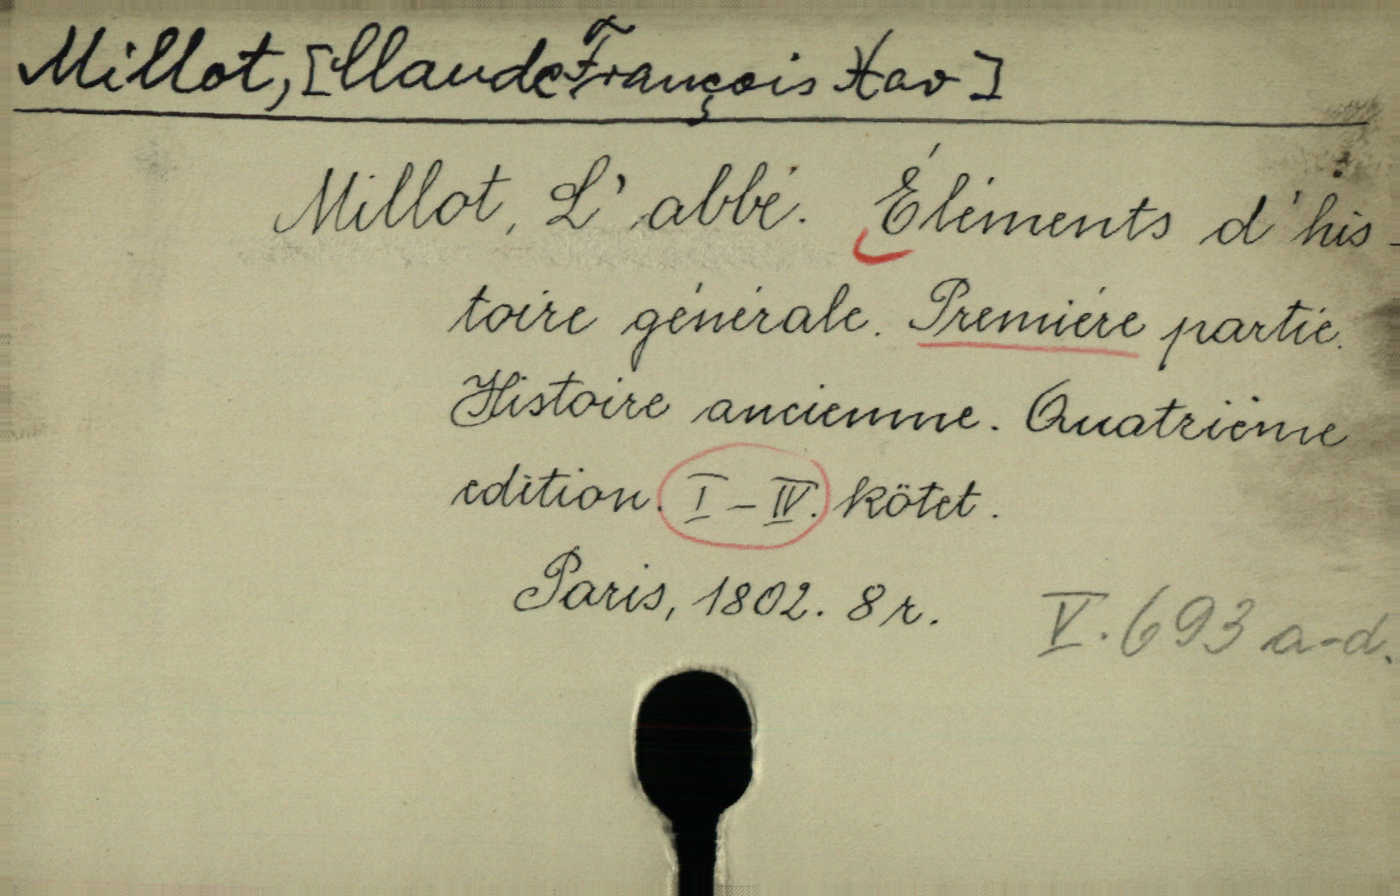 Millot, [Claude François Xav]
Millot, L'abbé. Éléments d'his-
toire générale. Premiére partie.
Histoire ancienne. Quatriéme
edition. I-IV. kötet.
Paris, 1802. 8 r.
V. 693 a-d.